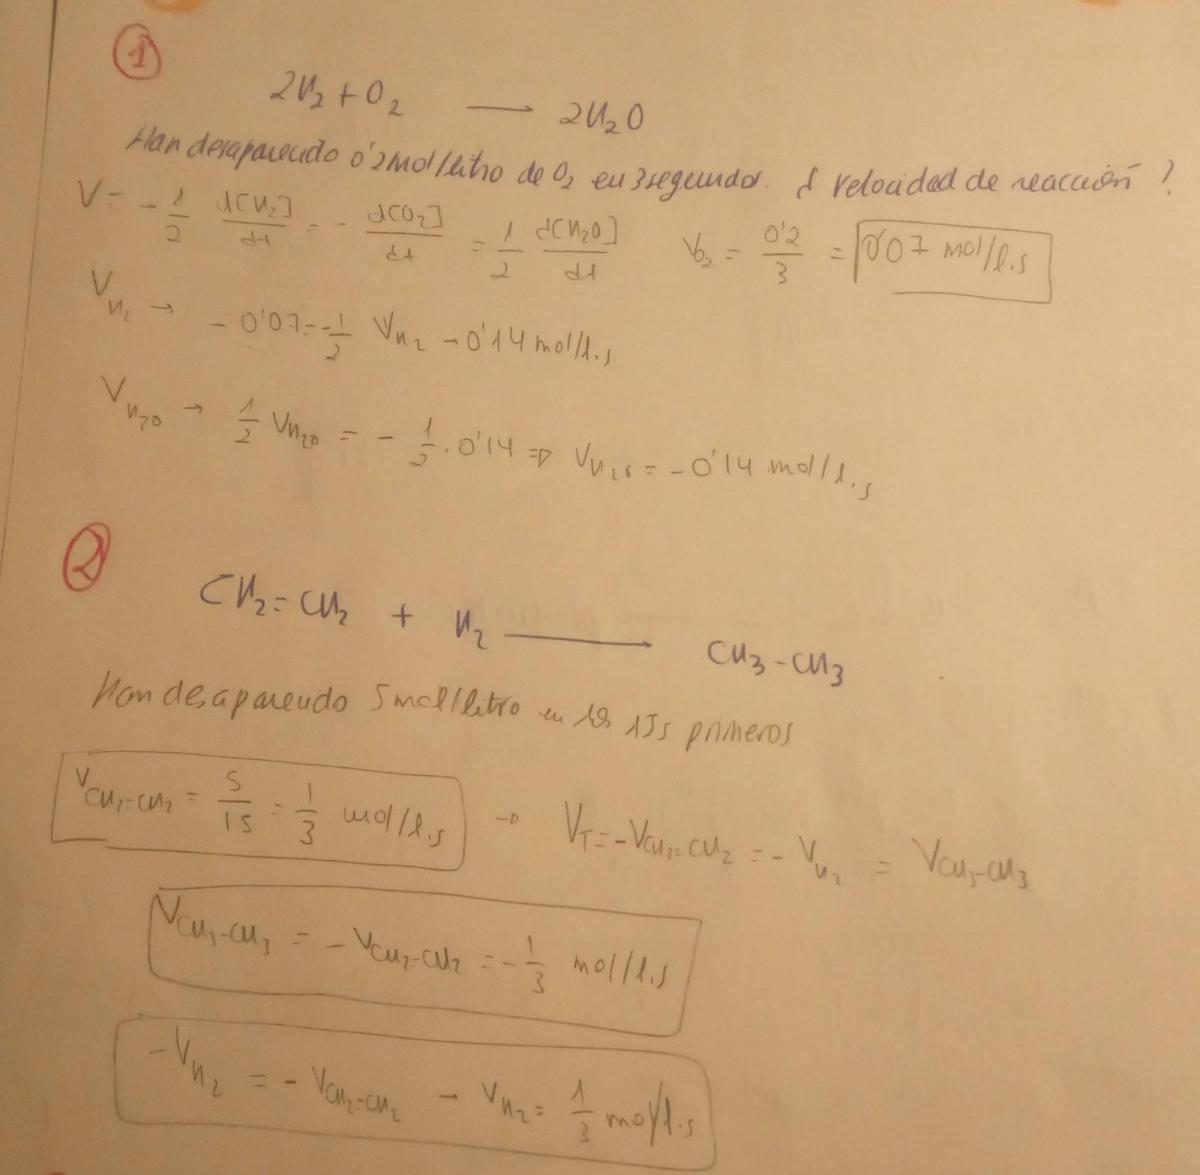 1
2H2 + O2 → 2H2O
Han desaparecido 0'2mol/litro de O2 en 3 segundos. ¿ velocidad de reacción ?
V = - 1/2 d[H2]/dt = - d[O2]/dt = 1/2 d[H2O]/dt   VO2 = 0'2/3 = 0'07 mol/l.s
VH2 → - 0'07 = - 1/2 VH2 → 0'14 mol/l.s
VH2O → 1/2 VH2O = - 1/2 · 0'14 ⇒ VH2O = - 0'14 mol/l.s
2
CH2=CH2 + H2 → CH3-CH3
Han desaparecido 5 mol/litro en los 15s primeros
VCH2=CH2 = 5/15 = 1/3 mol/l.s → VT = -VCH2=CH2 = - VH2 = VCH3-CH3
VCH3-CH3 = - VCH2-CH2 = - 1/3 mol/l.s
- VH2 = - VCH2=CH2 → VH2 = 1/3 mol/l.s